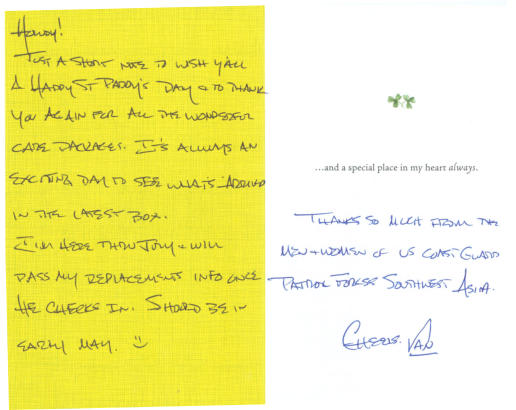 Howdy!
Just a short note to wish y'all
a Happy St Paddy's Day & to thank
you again for all the wonderful
care packages. It's always an
exciting day to see what's arrived
in the latest box.
I'm here thru July & will
pass my replacements info once
he checks in. Should be in
early May.
...and a special place in my heart always.
Thanks so much from the
men & women of US Coast Guard
Patrol Forces Southwest Asia.
Cheers. Van